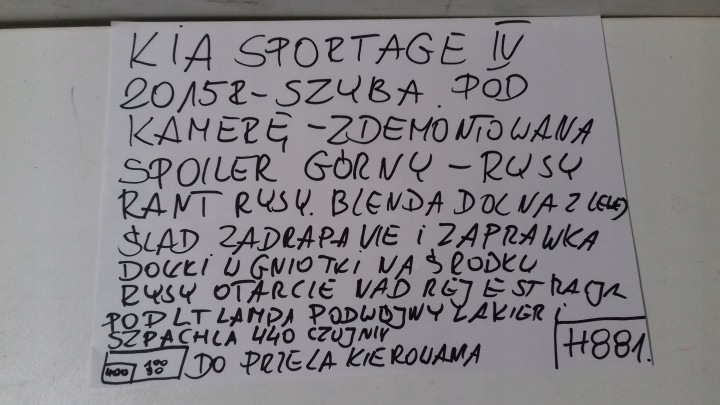 KIA SPORTAGE IV
2015R - SZYBA. POD
KAMERĘ - ZDEMONTOWANA
SPOILER GÓRNY - RYSY
RANT RYSY. BLENDA DOLNA Z LEWEJ
ŚLAD ZADRAPANIE i ZAPRAWKA
DOŁKI UGNIOTKI NA ŚRODKU
RYSY OTARCIE NAD REJESTRACJĄ
POD LT LAMPĄ PODWÓJNY LAKIER i
SZPACHLA 440 CZUJNIK
400 100 30 DO PRZELAKIEROWANIA
H881.